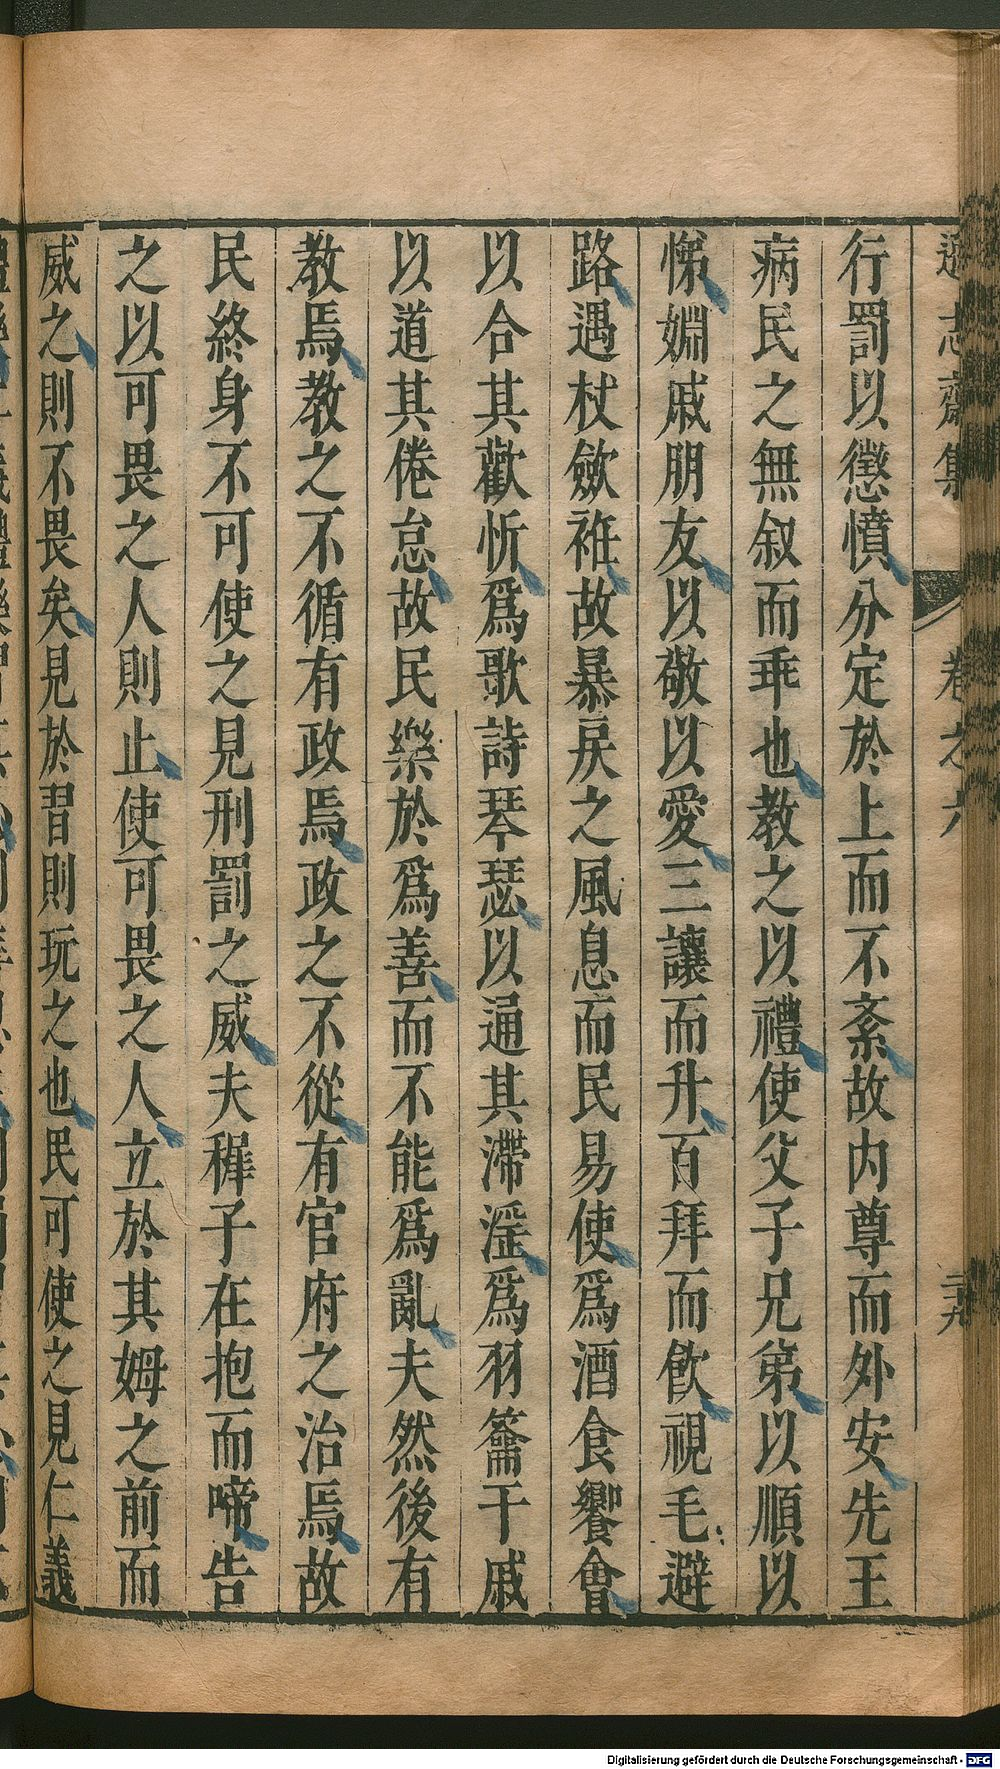 遜志齋集 卷之六 二十九
行罰以懲憤分定於上而不紊故内尊而外安先王
病民之無叙而乖也教之以禮使父子兄弟以順以
悌婣戚朋友以敬以愛三讓而升百拜而飲視毛避
路遇杖斂袵故暴戾之風息而民易使爲酒食饗會
以合其歡忻爲歌詩琴瑟以通其滯淫爲羽籥干戚
以道其倦怠故民樂於爲善而不能爲亂夫然後有
教焉教之不循有政焉政之不從有官府之治焉故
民終身不可使之見刑罰之威夫稺子在抱而啼告
之以可畏之人則止使可畏之人立於其姆之前而
威之則不畏矣見於習則玩之也民可使之見仁義
Digitalisierung gefördert durch die Deutsche Forschungsgemeinschaft - DFG